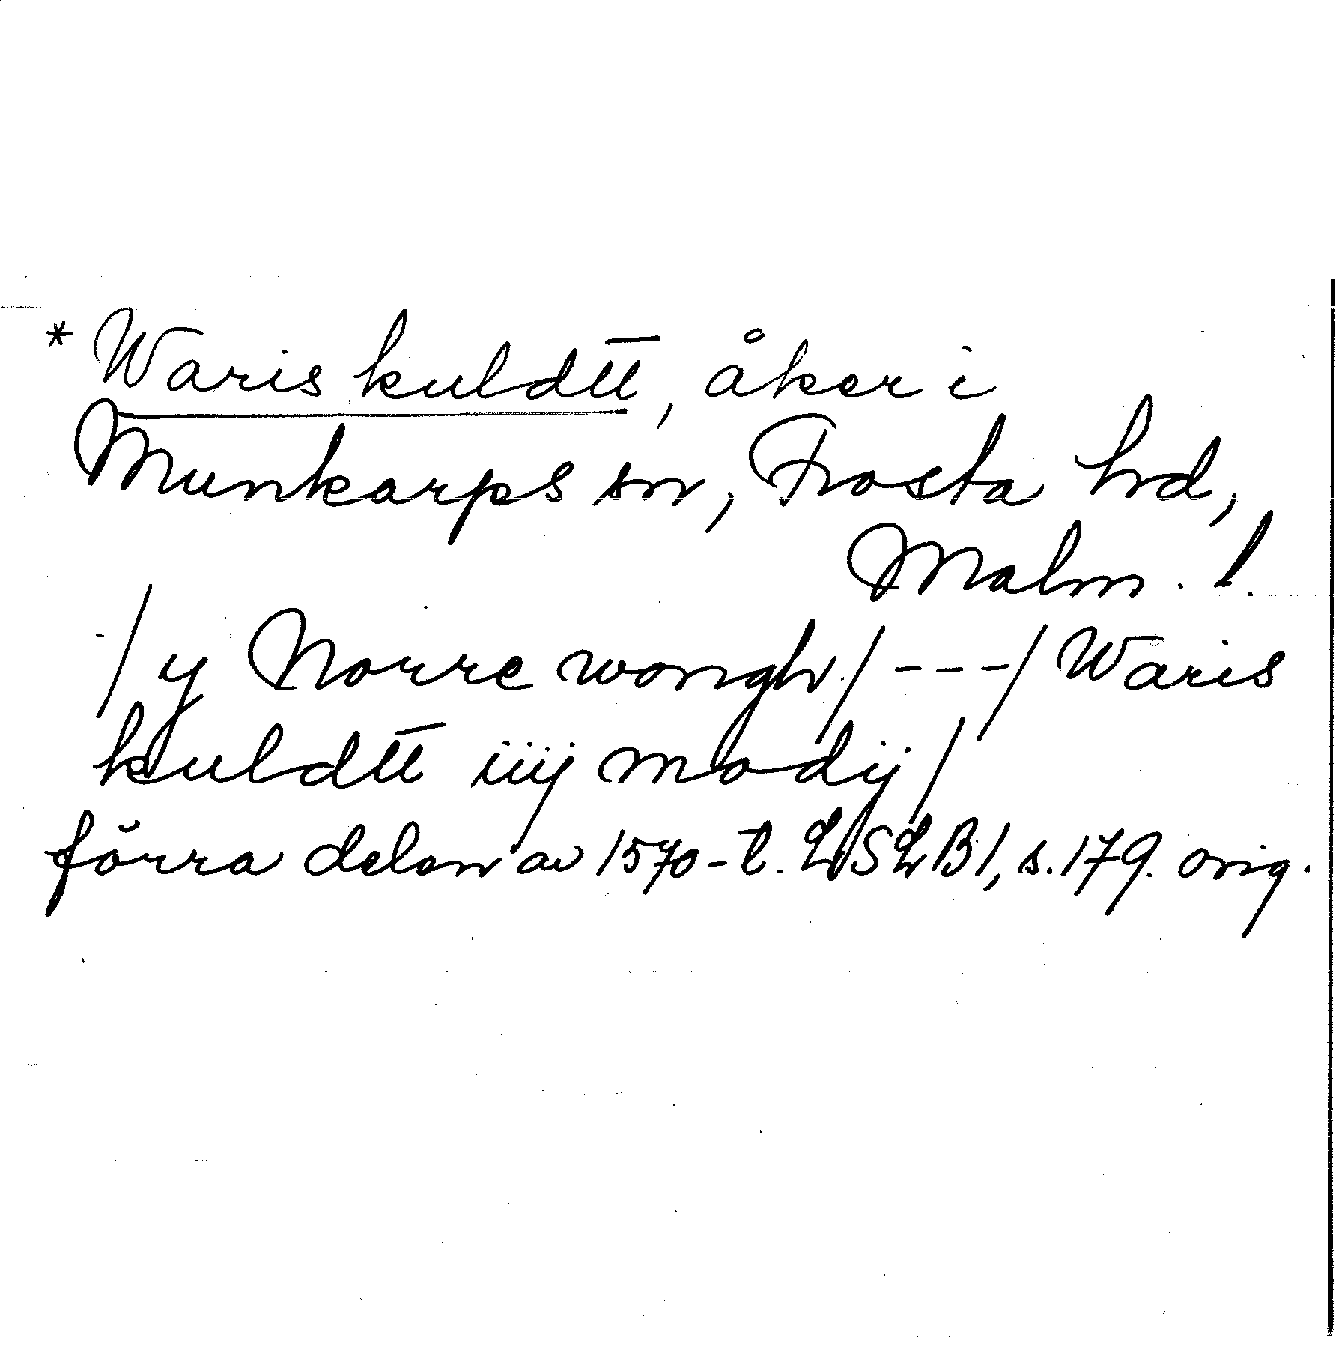 * Waris kuldtt, åker i
Munkarps sn, Frosta hd,
Malm. l.
/y Norre wongh/---/Waris
kuldtt iiij modij/
förra delen av 1570-t. LSLB1, s. 179. orig.